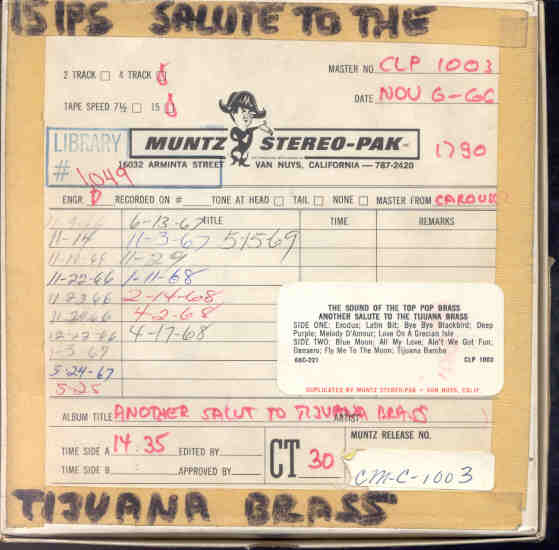 15 IPS SALUTE TO THE
2 TRACK 4 TRACK
MASTER NO. CLP 1003
TAPE SPEED 7½ 15
DATE NOV 6-66
LIBRARY
MUNTZ STEREO-PAK
16032 ARMINTA STREET VAN NUYS, CALIFORNIA — 787-2420
1790
# 1049
ENGR. RECORDED ON # TONE AT HEAD TAIL NONE MASTER FROM
TITLE TIME REMARKS
6-13-67
11-14 11-3-67 5-15-69
11-29
11-22-66 1-11-68
11-23-66 2-14-68
4-2-68
12-22-66 4-17-68
1-3 67
5-24-67
5-25
THE SOUND OF THE TOP POP BRASS
ANOTHER SALUTE TO THE TIJUANA BRASS
SIDE ONE: Exodus; Latin Bit; Bye Bye Blackbird; Deep
Purple; Melody D'Amour; Love On A Grecian Isle
SIDE TWO: Blue Moon; All My Love; Ain't We Got Fun;
Dansero; Fly Me To The Moon; Tijuana Bamba
66C-221 CLP 1003
DUPLICATED BY MUNTZ STEREO-PAK — VAN NUYS, CALIF.
ALBUM TITLE ANOTHER SALUT TO TIJUANA BRASS ARTIST
TIME SIDE A 14:35 EDITED BY
CT 30
MUNTZ RELEASE NO.
TIME SIDE B APPROVED BY
CM-C-1003
TIJUANA BRASS